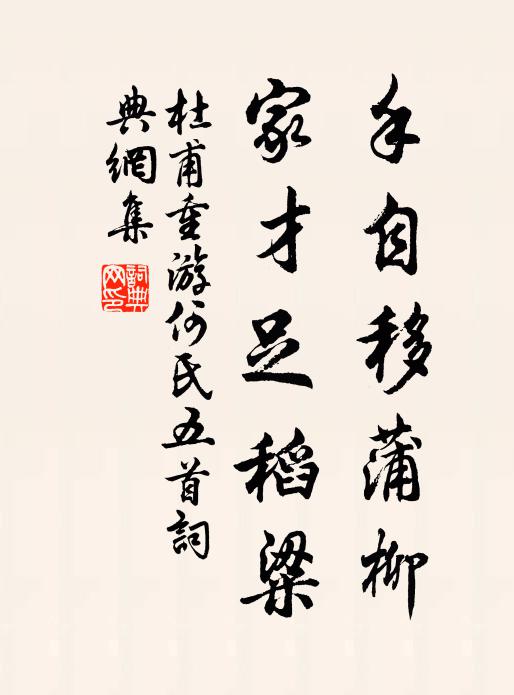 手自移蒲柳
家才足稻粱
杜甫重游何氏五首詞
典網集
詞典
网印